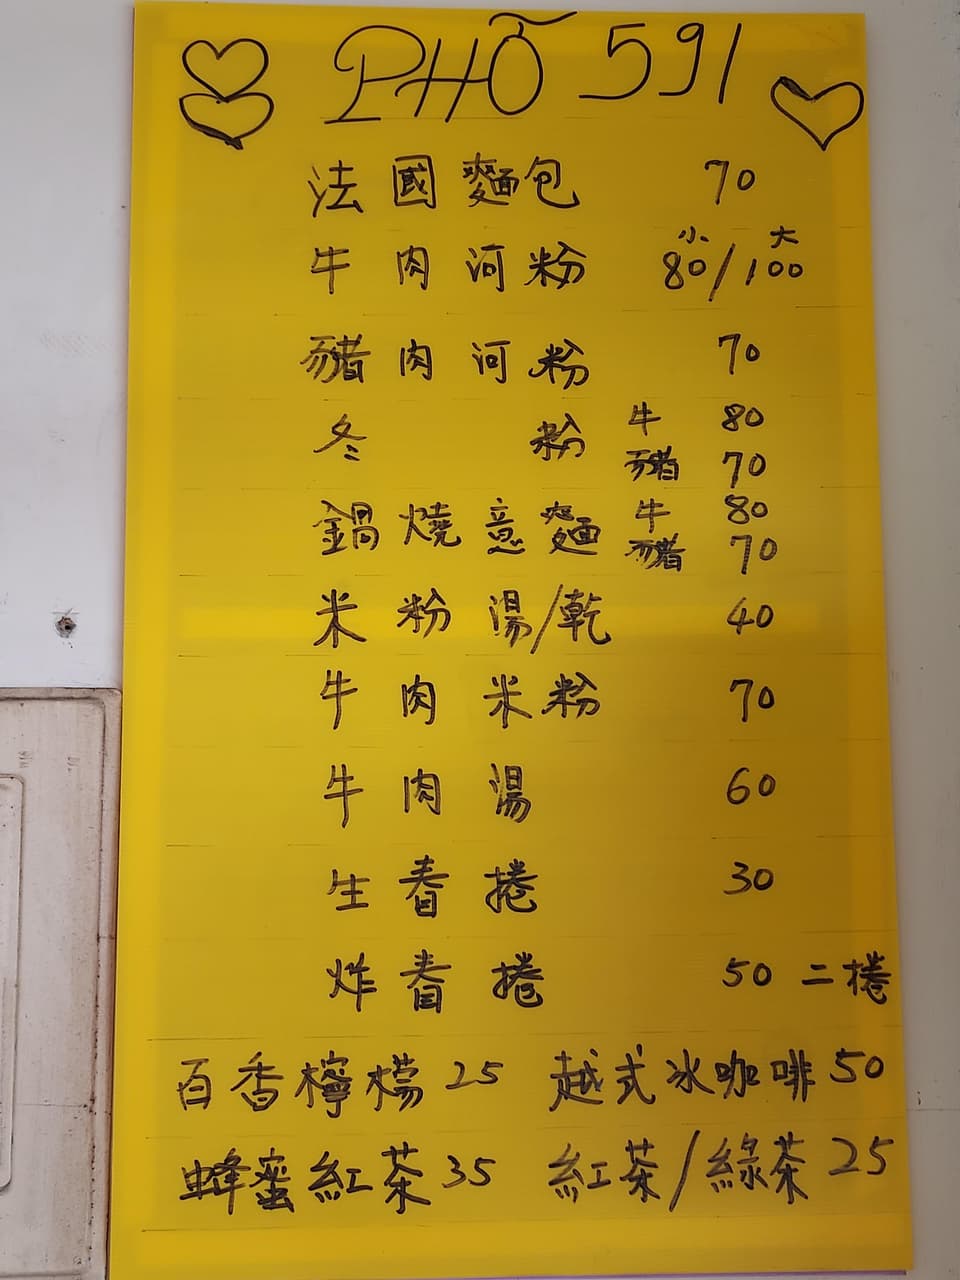 PHỞ 591
法國麵包 70
牛肉河粉 小80/大100
豬肉河粉 70
冬粉 牛 80
豬 70
鍋燒意麵 牛 80
豬 70
米粉湯/乾 40
牛肉米粉 70
牛肉湯 60
生春捲 30
炸春捲 50 二捲
百香檸檬 25 越式冰咖啡 50
蜂蜜紅茶 35 紅茶/綠茶 25